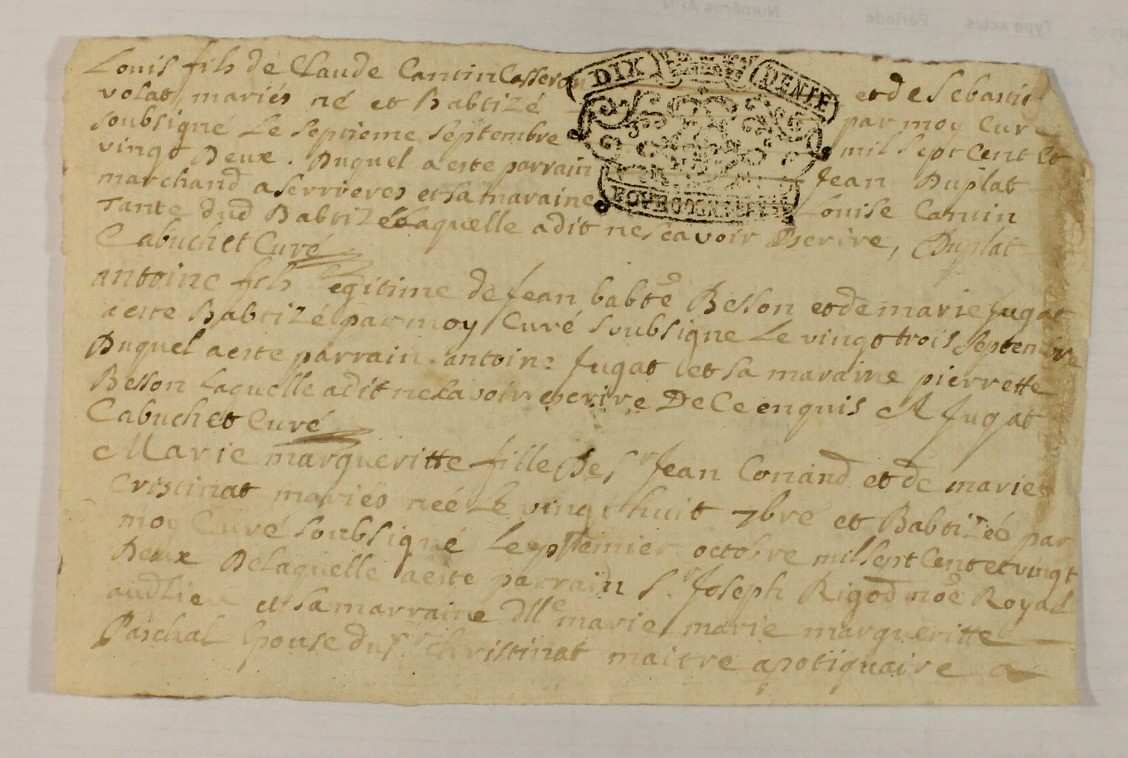 Louis fils de Claude Canin Casseron et de Sebastie
volat mariés né et Babtizé par moy Curé
soubsigné Le septieme septembre mil sept Cent et
vingt Deux. Duquel a este parrain Jean Duplat
marchand a serrieres et sa maraine Louise Canin
Tante dud Babtizé Laquelle a dit ne scavoir Escrire, Duplat
Cabuchet Curé
antoine fils legitime de Jean babte Besson et de marie fugat
a este Babtizé par moy Curé soubsigne Le vingt trois septembre
Duquel a este parrain antoine fugat et sa maraine pierrette
Besson Laquelle a dit ne scavoir escrire De Ce enquis A fugat
Cabuchet Curé
Marie margueritte fille De Sr Jean Conand et de marie
Cristinat mariés née Le vingt huit 7bre et Babtizée par
moy Curé soubsigné Le premier octobre mil sept Cent et vingt
Deux De laquelle a este parrain Sr Joseph Rigod noe Royal
aud Lieu et sa marraine dlle marie marie margueritte
Paschal Epouse du Sr Christinat maitre apotiquaire a
DIX DENIE